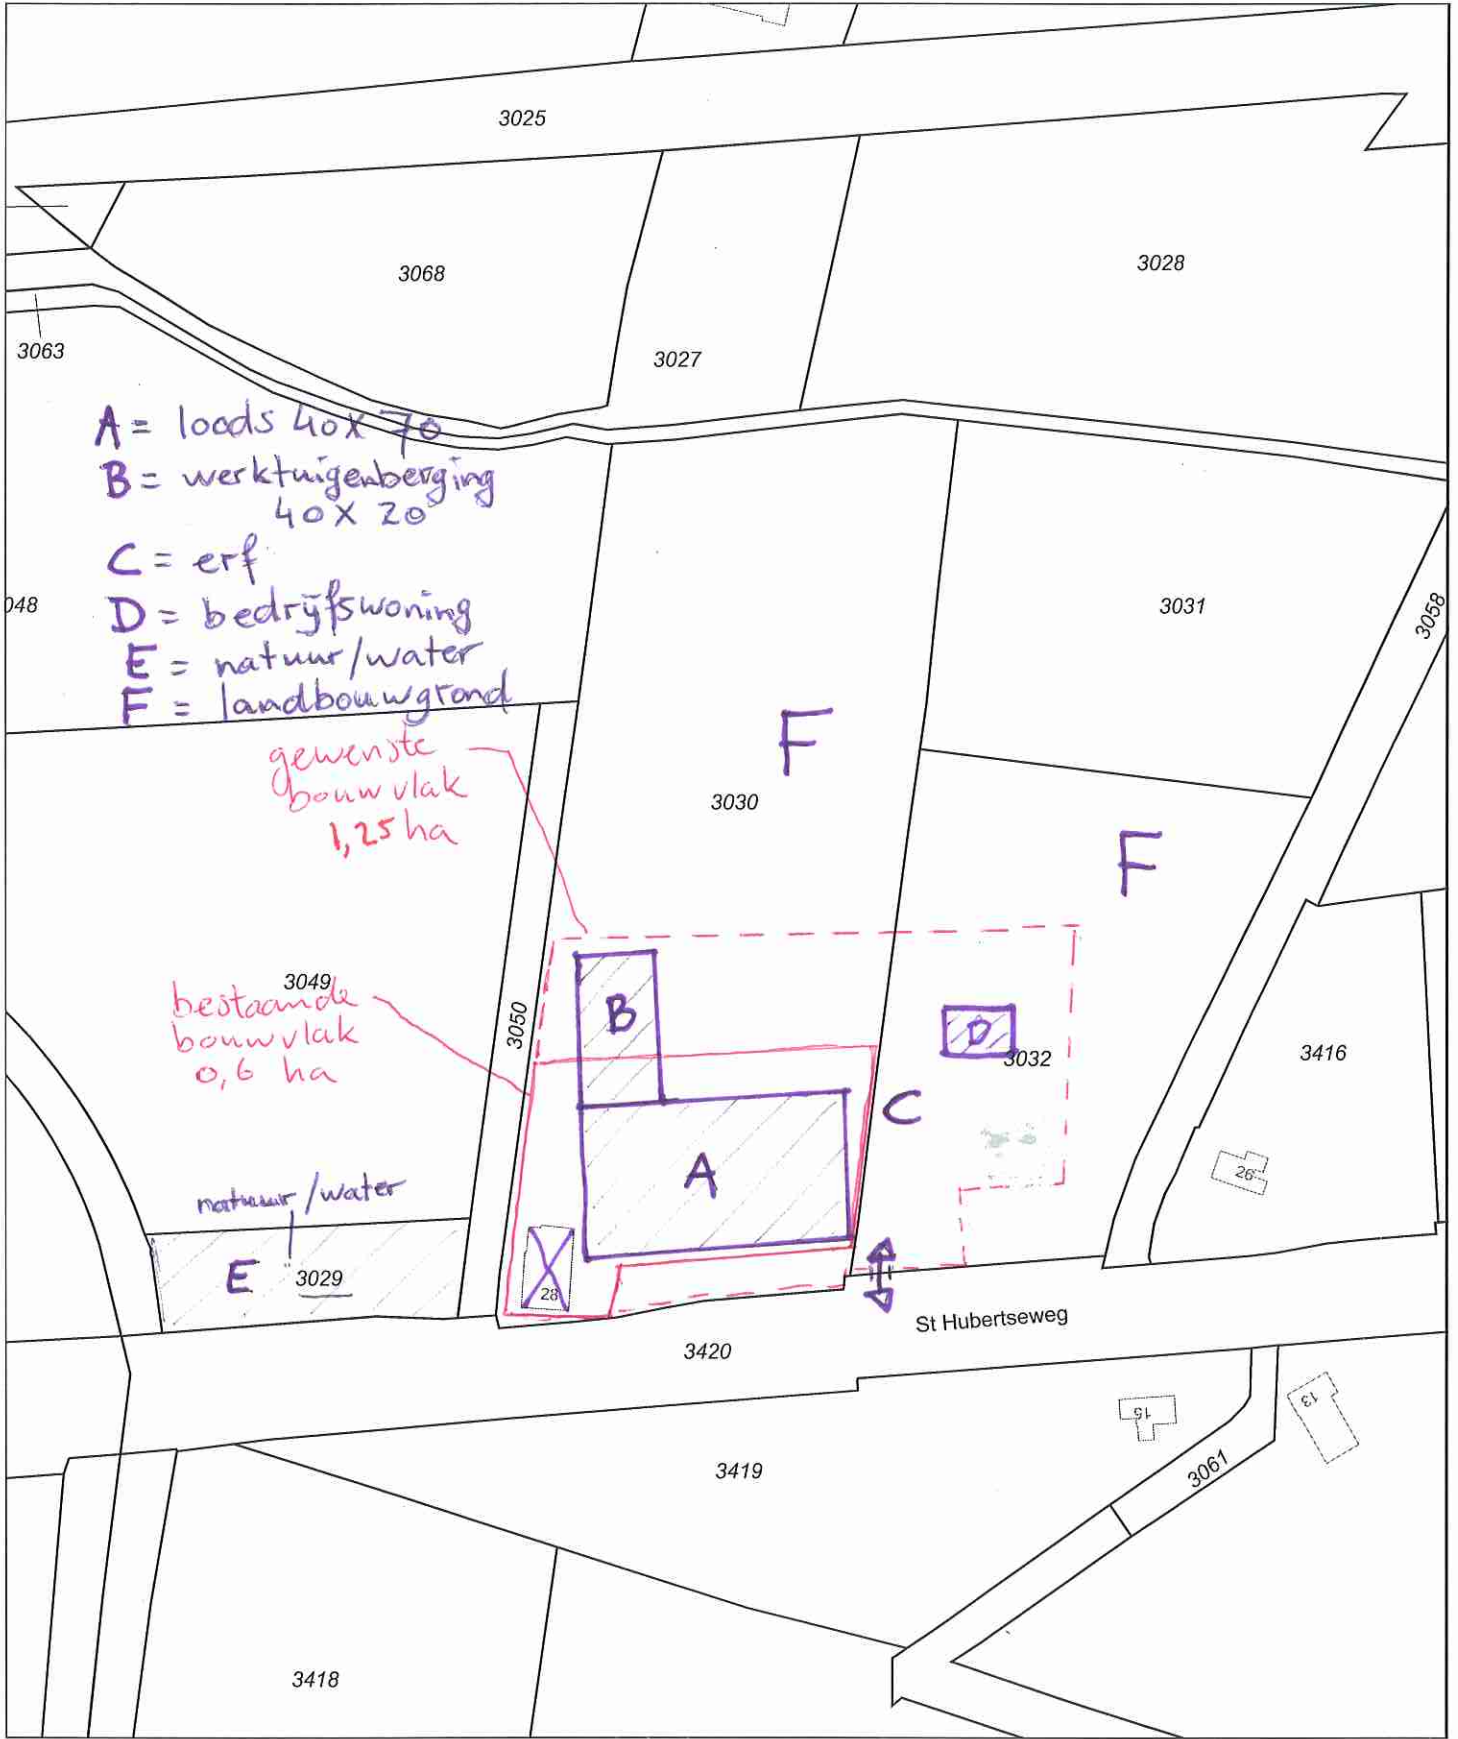 3025
3068
3028
3027
3063
A = loods 40 x 70
B = werktuigenberging
40 x 20
C = erf
D = bedrijfswoning
E = natuur/water
F = landbouwgrond
048
3031
3058
F
gewenste
bouwvlak
1,25 ha
3030
F
3049
bestaande
bouwvlak
0,6 ha
3050
B
D
3032
3416
C
A
26
natuur/water
E
3029
28
St Hubertseweg
3420
15
13
3419
3061
3418